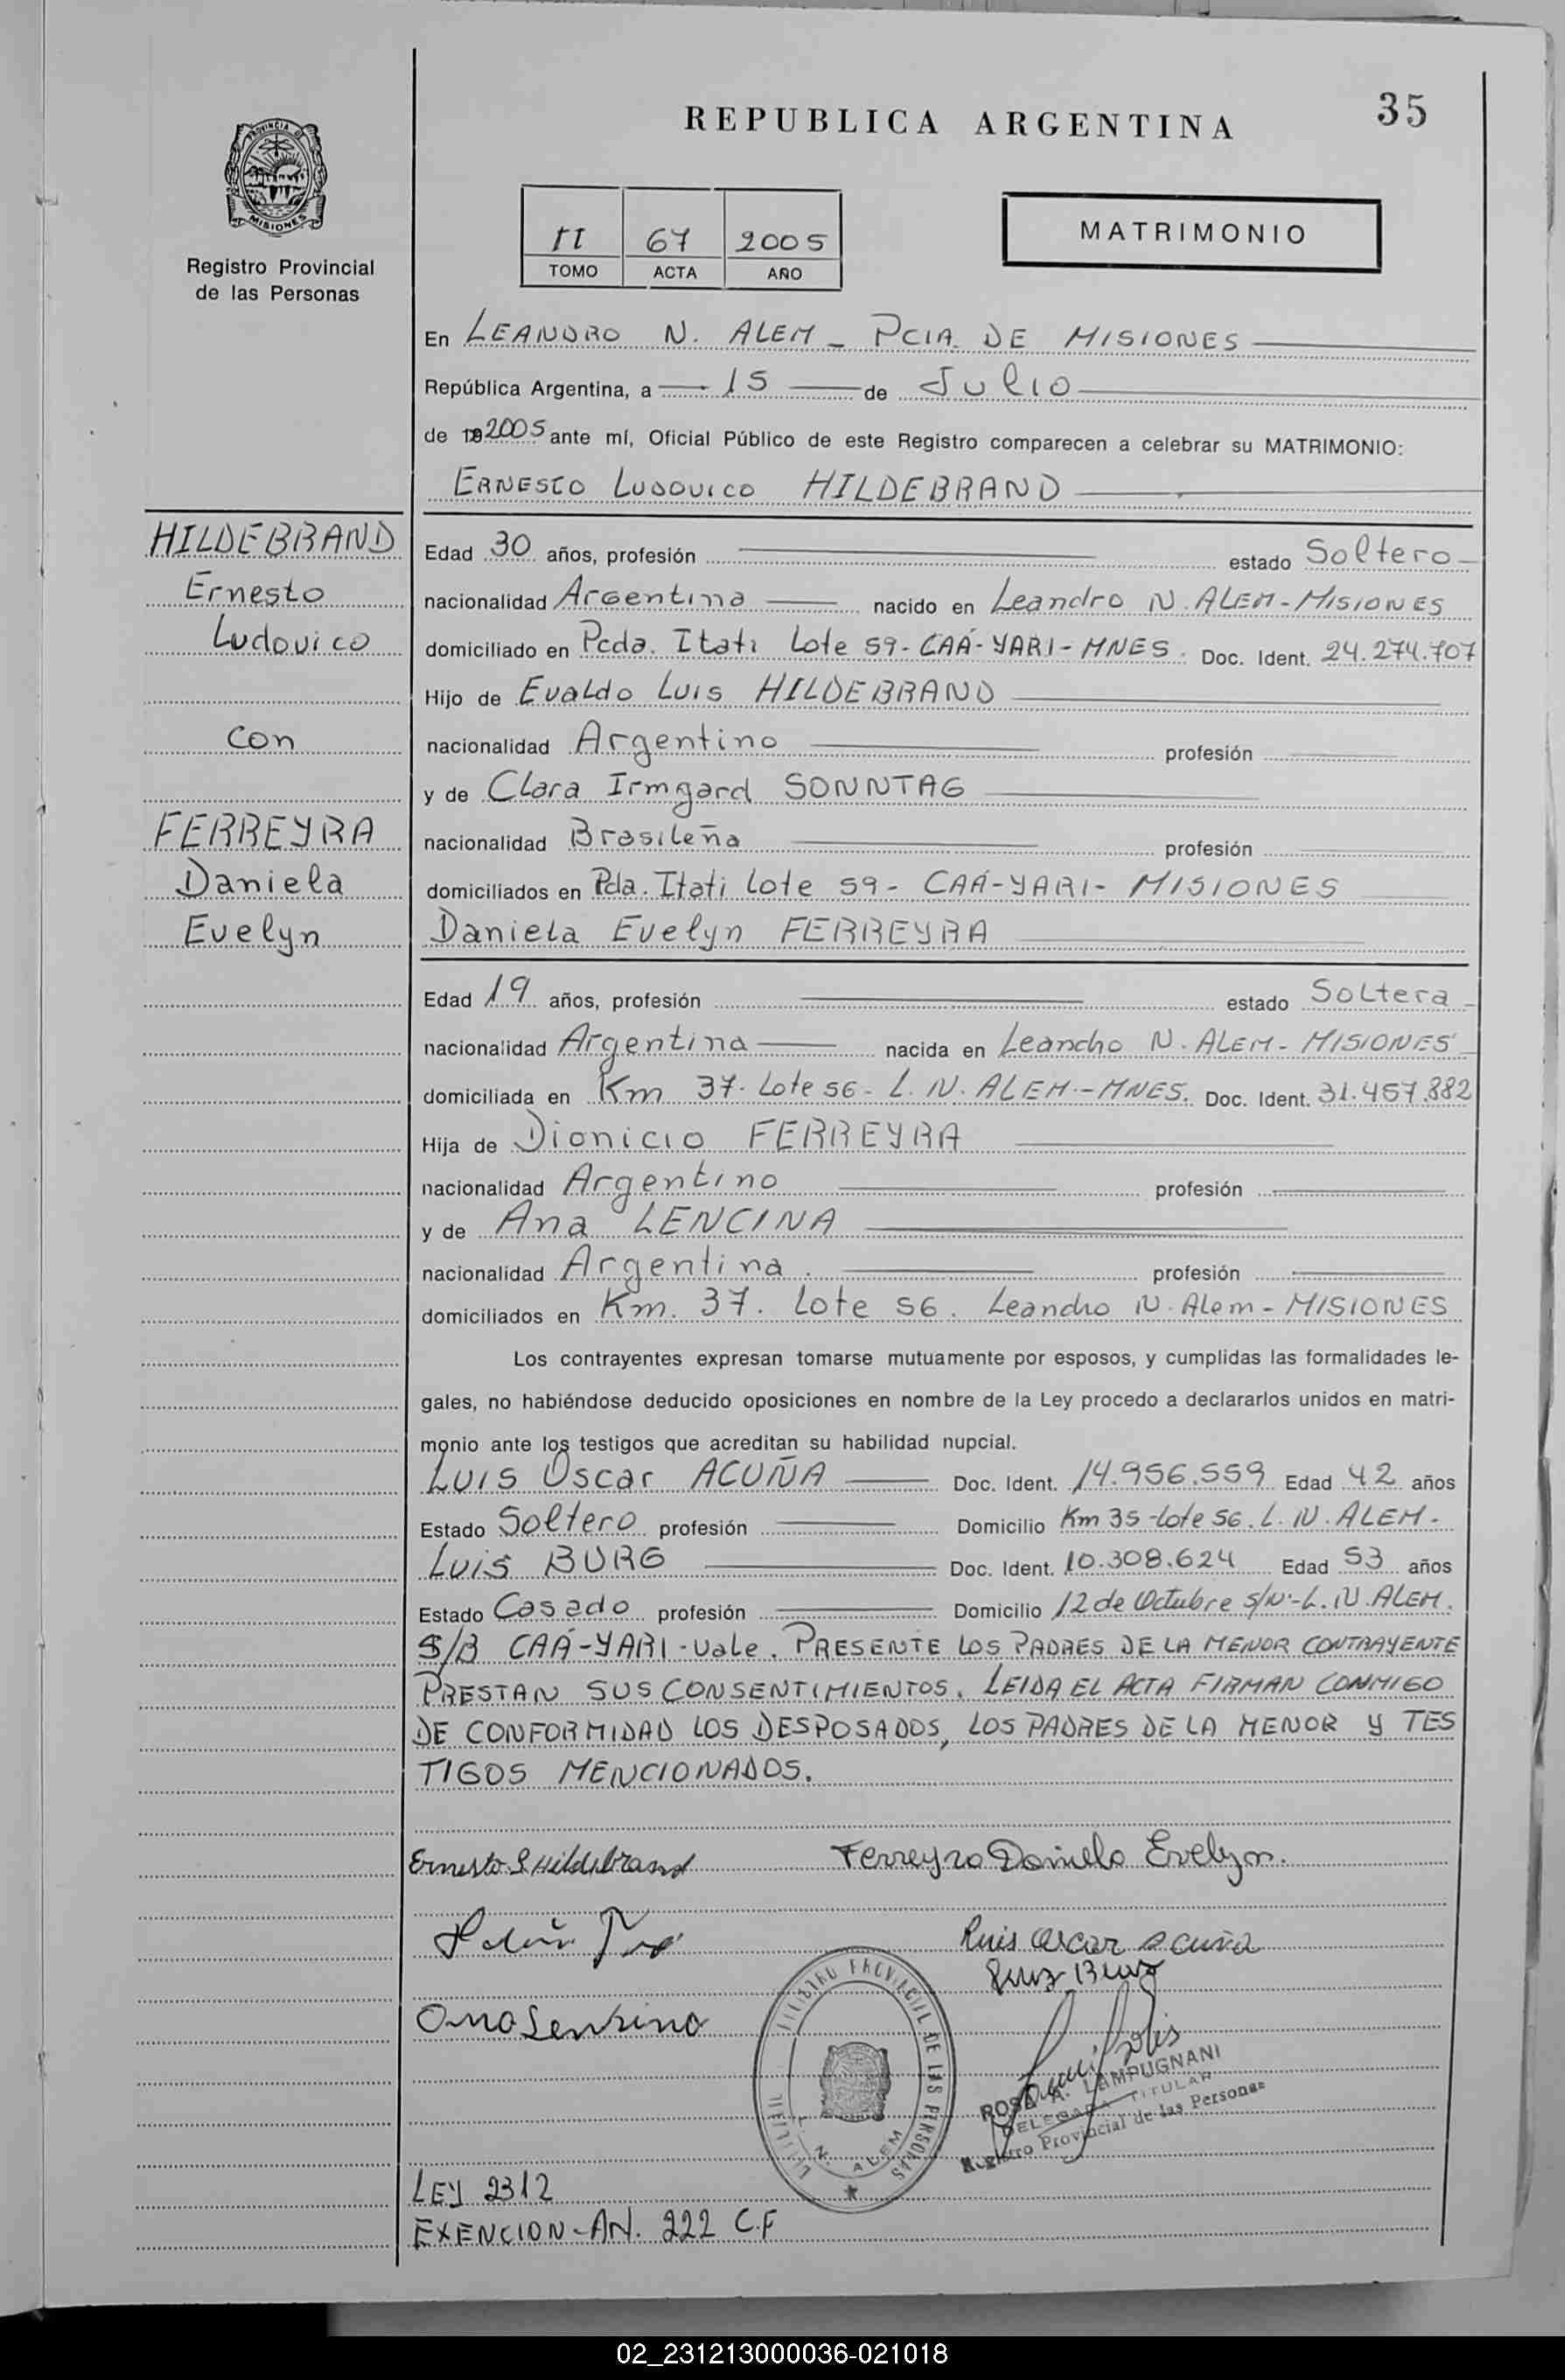 35
REPUBLICA ARGENTINA
PROVINCIA DE
MISIONES
Registro Provincial
de las Personas
II 67 2005
TOMO ACTA AÑO
MATRIMONIO
En LEANDRO N. ALEM - PCIA. DE MISIONES
República Argentina, a 15 de Julio
de 19 2005 ante mí, Oficial Público de este Registro comparecen a celebrar su MATRIMONIO:
ERNESTO LUDOVICO HILDEBRAND
HILDEBRAND
Ernesto
Ludovico
con
FERREYRA
Daniela
Evelyn
Edad 30 años, profesión estado Soltero
nacionalidad Argentina nacido en Leandro N. ALEM - MISIONES
domiciliado en Pcda. Itati Lote 59 - CAÁ-YARI - MNES. Doc. Ident. 24.274.707
Hijo de Evaldo Luis HILDEBRAND
nacionalidad Argentino profesión
y de Clara Irmgard SONNTAG
nacionalidad Brasileña profesión
domiciliados en Pcla. Itati Lote 59 - CAÁ-YARI - MISIONES
Daniela Evelyn FERREYRA
Edad 19 años, profesión estado Soltera
nacionalidad Argentina nacida en Leandro N. ALEM - MISIONES
domiciliada en Km 37. Lote 56 - L. N. ALEM - MNES. Doc. Ident. 31.457.882
Hija de Dionicio FERREYRA
nacionalidad Argentino profesión
y de Ana LENCINA
nacionalidad Argentina. profesión
domiciliados en Km. 37. Lote 56. Leandro N. Alem - MISIONES
Los contrayentes expresan tomarse mutuamente por esposos, y cumplidas las formalidades le-
gales, no habiéndose deducido oposiciones en nombre de la Ley procedo a declararlos unidos en matri-
monio ante los testigos que acreditan su habilidad nupcial.
Luis Oscar ACUÑA Doc. Ident. 14.956.559 Edad 42 años
Estado Soltero profesión Domicilio Km 35 - Lote 56. L. N. ALEM.
Luis BURG Doc. Ident. 10.308.624 Edad 53 años
Estado Casado profesión Domicilio 12 de Octubre s/n - L. N. ALEM.
S/B CAÁ-YARI - Vale. PRESENTE LOS PADRES DE LA MENOR CONTRAYENTE
PRESTAN SUS CONSENTIMIENTOS. LEIDA EL ACTA FIRMAN CONMIGO
DE CONFORMIDAD LOS DESPOSADOS, LOS PADRES DE LA MENOR Y TES
TIGOS MENCIONADOS.
Ernesto L Hildebrand Ferreyra Daniela Evelyn.
Luis Oscar Acuña
Ana Lensina
REGISTRO PROVINCIAL DE LAS PERSONAS
L. N. ALEM
ROSA A. LAMPUGNANI
DELEGADA TITULAR
Registro Provincial de las Personas
LEY 2312
EXENCION - Art. 222 C.F
02_231213000036-021018